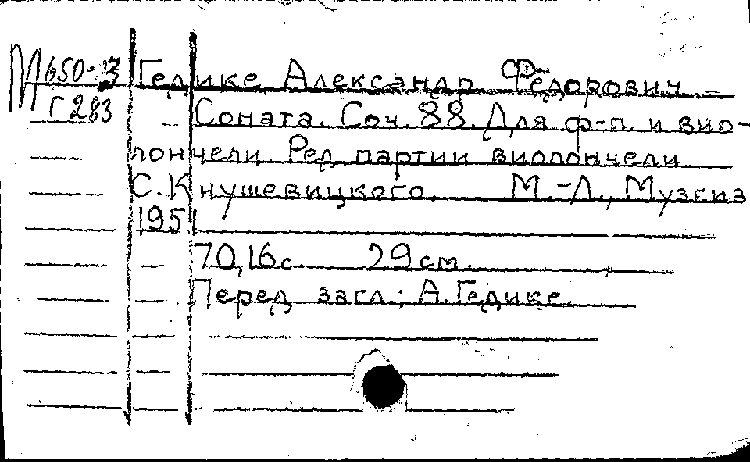 М 650-3 Гедике Александр Фёдорович –
Г 283 Соната. Соч. 88. Для ф-п. и вио-
лончели. Ред. партии виолончели
С. Кнушевицкого. М.-Л., Музгиз
1951
70, 16 с. 29 см.
Перед загл.: А. Гедике.